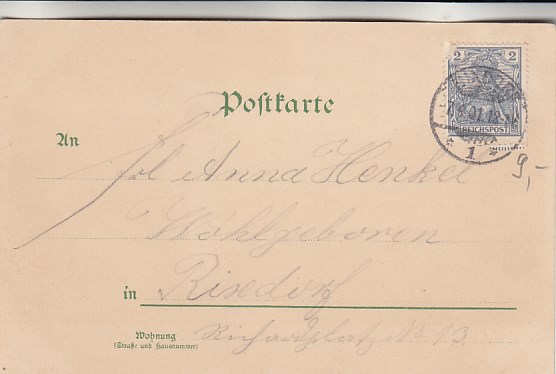 2 2
REICHSPOST
1
Postkarte
9,-
An
Frl Anna Henkel
Wohlgeboren
in Rixdorf
Wohnung
(Straße und Hausnummer)
Richardplatz No 13.